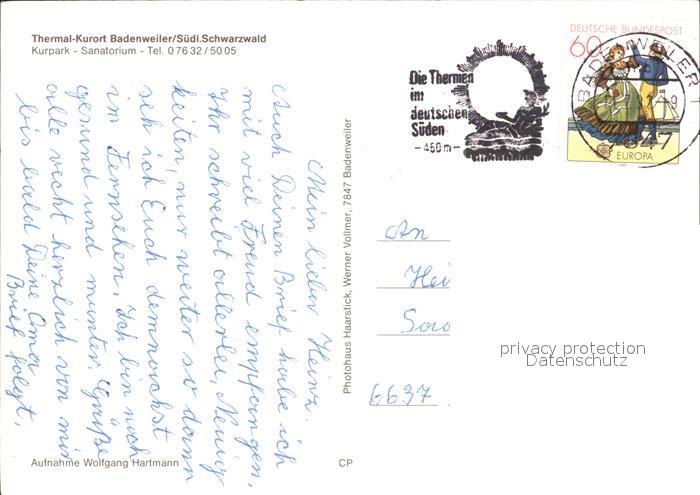 Thermal-Kurort Badenweiler/Südl.Schwarzwald
Kurpark - Sanatorium - Tel. 0 76 32 / 50 05
Mein lieber Heinz.
Auch Deinen Brief habe ich
mit viel Freud empfangen,
Ihr schreibt allerlei, Neuig
keiten, nur weiter so dann
seh ich Euch demnächst
im Fernsehen. Ich bin noch
gesund und munter. Grüße
alle recht herzlich von mir
bis bald Deine Oma
Brief folgt.
Aufnahme Wolfgang Hartmann
CP
Photohaus Haarstick, Werner Vollmer, 7847 Badenweiler
Die Thermen
im
deutschen
Süden
- 460 m -
DEUTSCHE BUNDESPOST
60
EUROPA
BADENWEILER
7847
An
Hei
6637
privacy protection
Datenschutz